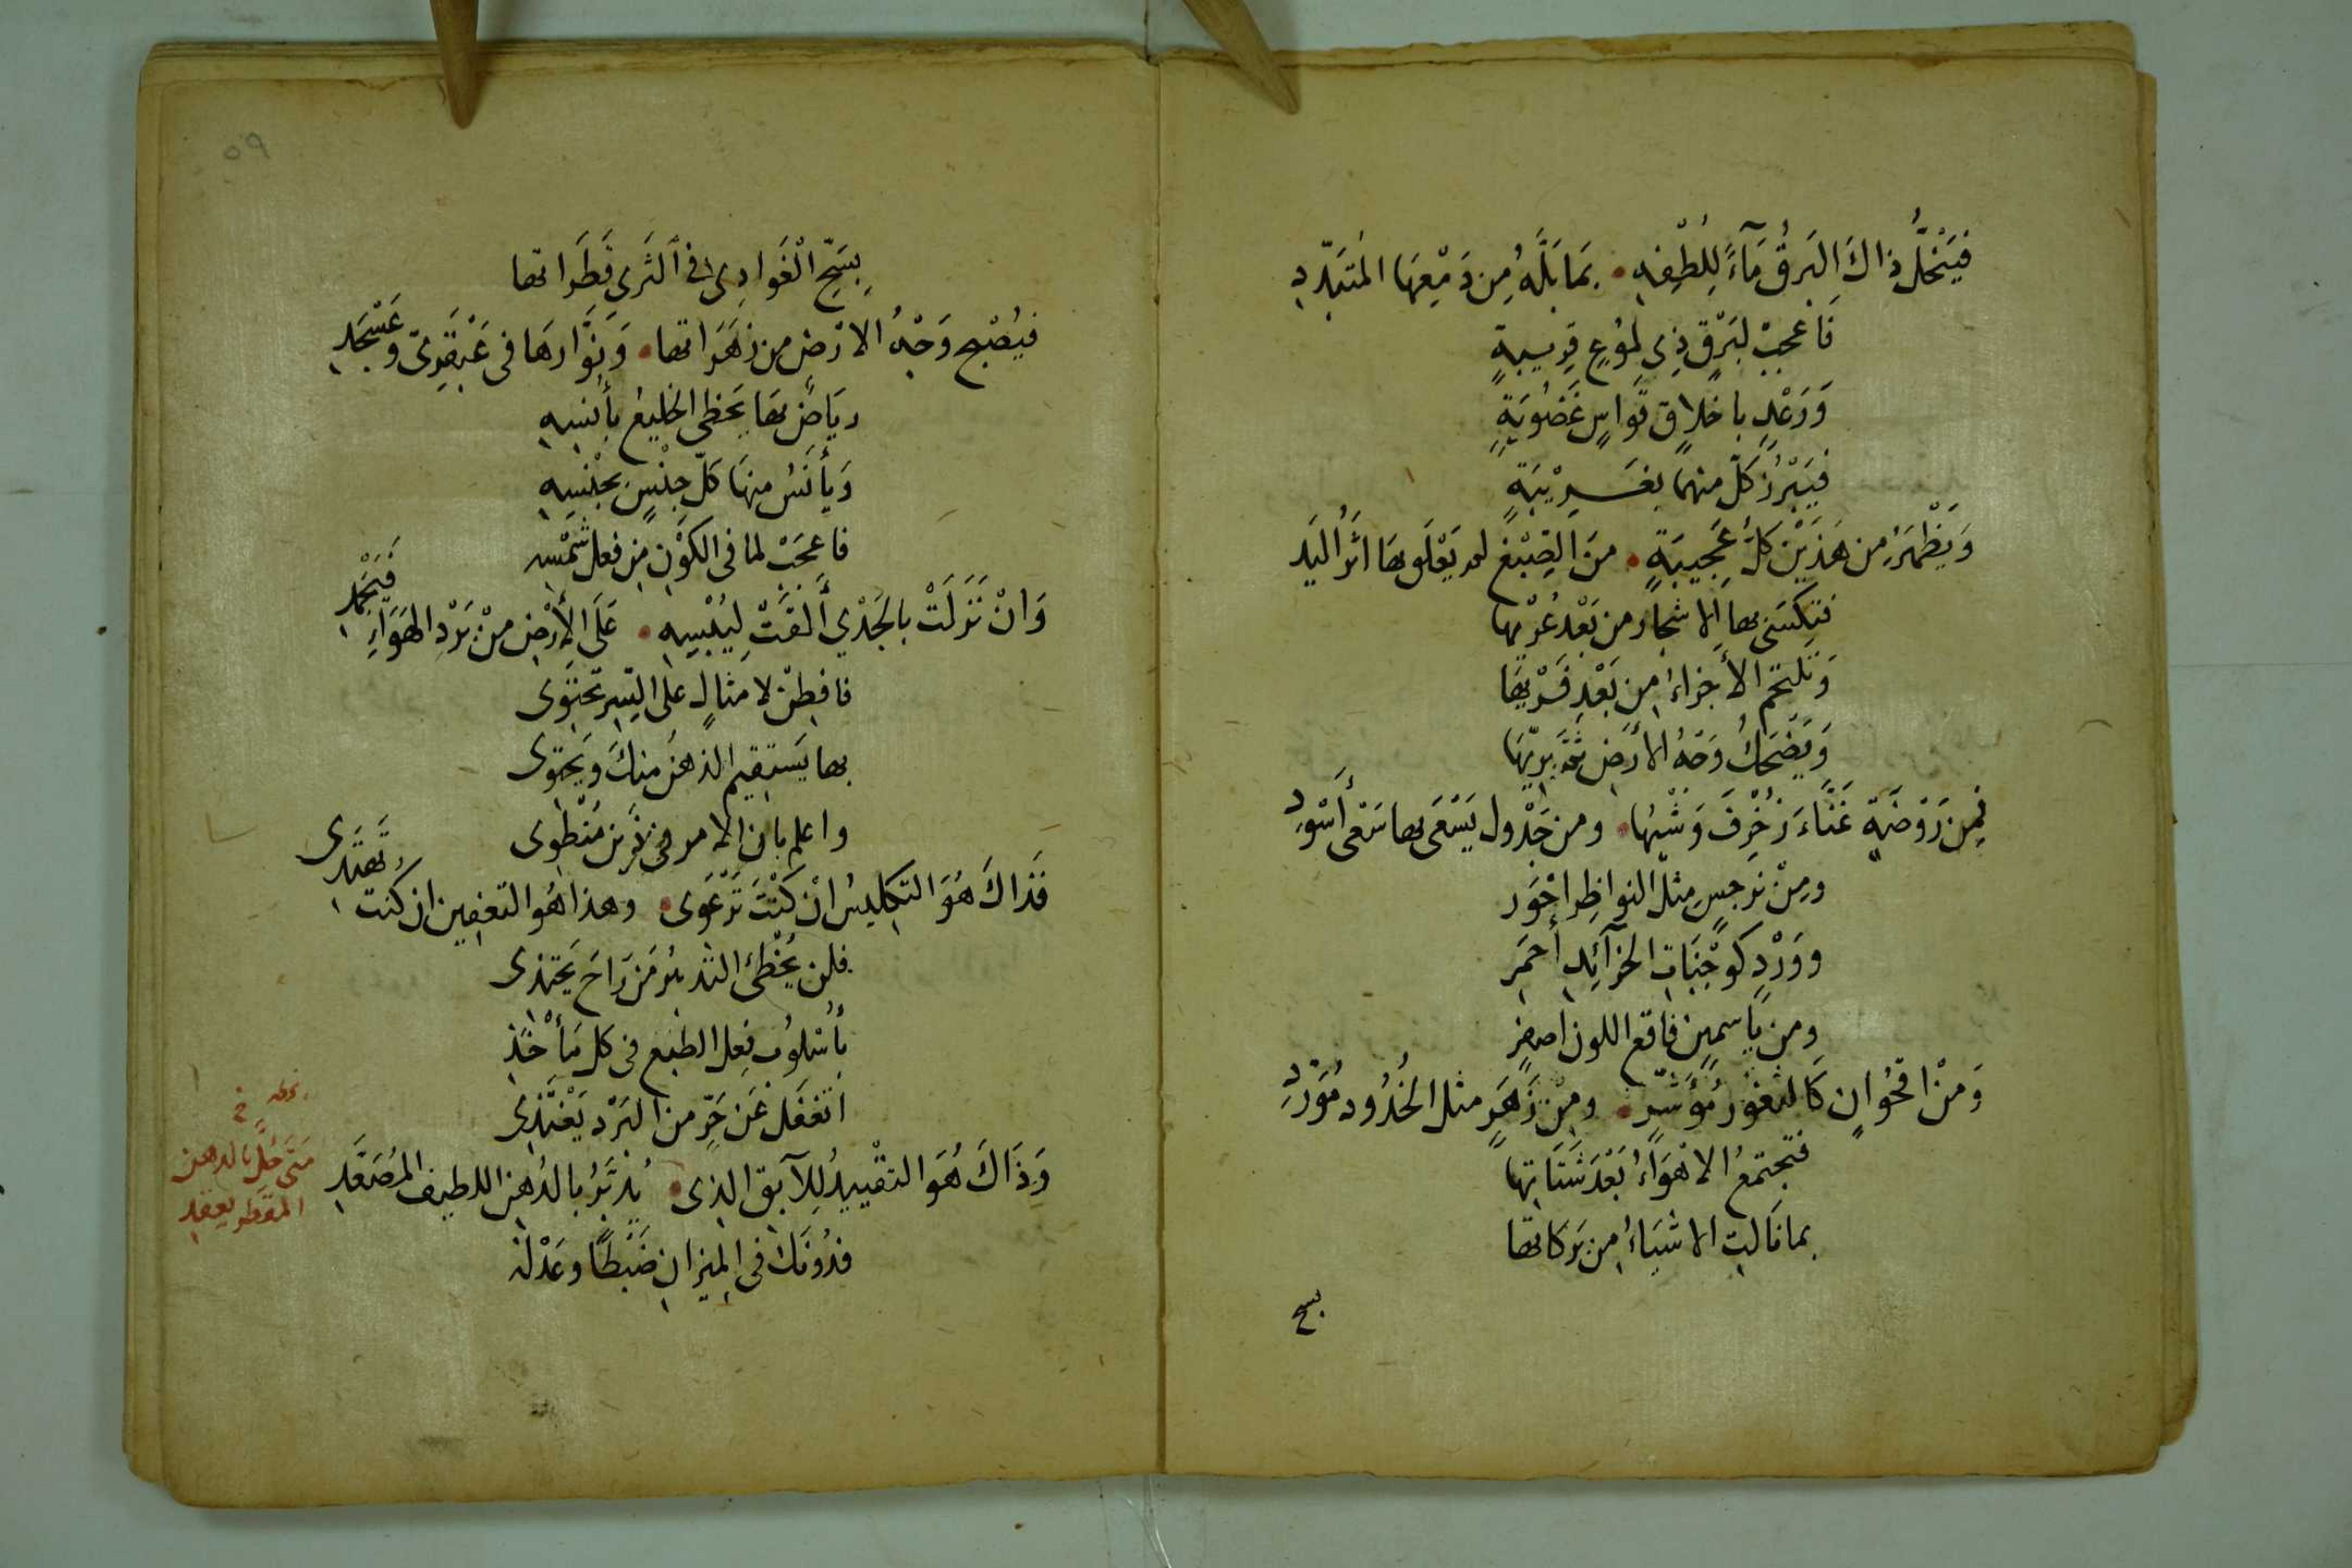 فَيَنْحَلُّ ذاكَ البَرقُ مَآءً لِلُطْفِهِ • بِمَا بَلَّهُ مِن دَمْعِهَا المُتَبَدِّدِ
فَاعجبْ لبَرْقٍ ذِي لمُوعٍ قريبةٍ
وَرَعْدٍ باخلاقٍ قَواسٍ غَضُوبَةٍ
فَيَبْرُزُ كلٌّ منهما بغَرِيْبَةٍ
وَيَظْهَرُ مِن هَذَيْنِ كلُّ عَجِيبَةٍ • منَ الصِّبْغِ لم يَعْلَق بها أثَرُ اليَدِ
فتكتسَى بها الاشجار من بَعْدِ عُرْيها
وَتلتحمُ الأجزاءُ من بَعْدِ فَرْيِهَا
وَيَضْحَكُ وَجْهُ الأرْضِ ثَمَّ بِرِيِّهَا
فمِن رَوْضَةٍ غَنَّاءَ زُخْرِفَ وَشْيُها • ومن جَدْولٍ يَسْعَى بها سَعْىَ أسْودِ
ومِنْ نرجسٍ مثل النواظِر احْوَر
ووَرْدٍ كوَجْنَاتِ الخرآئِدِ أحمَر
ومن ياسمينٍ فاقع اللون اصفر
وَمنْ اقحُوانٍ كَالثغُور مُؤشَّرٍ • ومِنْ زَهَرٍ مثل الخُدُود مُوَرَّدِ
فتجتمعُ الاهْوَاءُ بَعْدَ شَتَاتِها
بما نَالتِ الاشيَاءُ من بَرَكاتها
بسح
٥٩
بِسَحِّ الْغَوادِى فى الثَرى قَطَراتها
فيُصْبح وَجْهُ الارْضِ من زهَرَاتها • وَنُوَّارهَا فى عَبْقَرِىّ وعَسْجَدِ
رياضٌ بها يَحظى الخليعُ بأُنسِهِ
وَيأنَسُ منهَا كلّ جِنْسٍ بجنْسِهِ
فاعجَبْ لما فى الكَوْن مِن فعل شَمْسِهِ
وَانْ نَزَلَتْ بالجَدْي ألقَتْ لِيُبْسِهِ • عَلَى الأرْضِ مِنْ بَرْدِ الهَوَاءِ فَيَجْمدِ
فافطِنْ لامثالٍ على السِّر تحتوى
بها يَستقيم الذهنُ منكَ ويَحتوى
واعلم بان الامر فى ذَيْنِ مُنْطوِى
فَذاكَ هُوَ التكليسُ انْ كنْتَ تَرْعَوى • وهذا هُو التعفين ان كنت تَهتَدِى
فلن يُخْطِئ التدبيرُ مَن رَاحَ يَحتذى
بأسْلوُب فِعل الطبع فى كل مَأْخَذِ
اتغفَل عَن حَرٍّ من البَرْد يَغْتَذِى
وَذَاكَ هُوَ التقْييدُ لِلآبق الذى • يُدَبَّرُ بالدُهن اللطيف المُصَعَّدِ
متى حُلَّ بالدهن
المقطر يعقد
فدُونَكَ فى الميزان ضَبْطًا وعَدْلَهُ